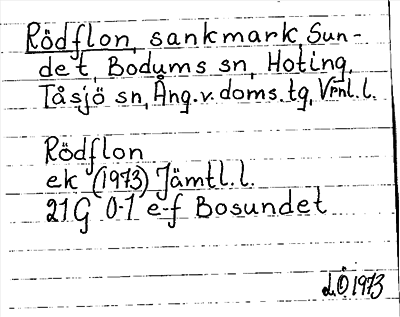 Rödflon, sankmark, Sun-
det, Bodums sn, Hoting,
Tåsjö sn, Ång.v.doms.tg, Vrnl.l.
Rödflon
ek (1973) Jämtl.l.
21G 0-1 e-f Bosundet
1973